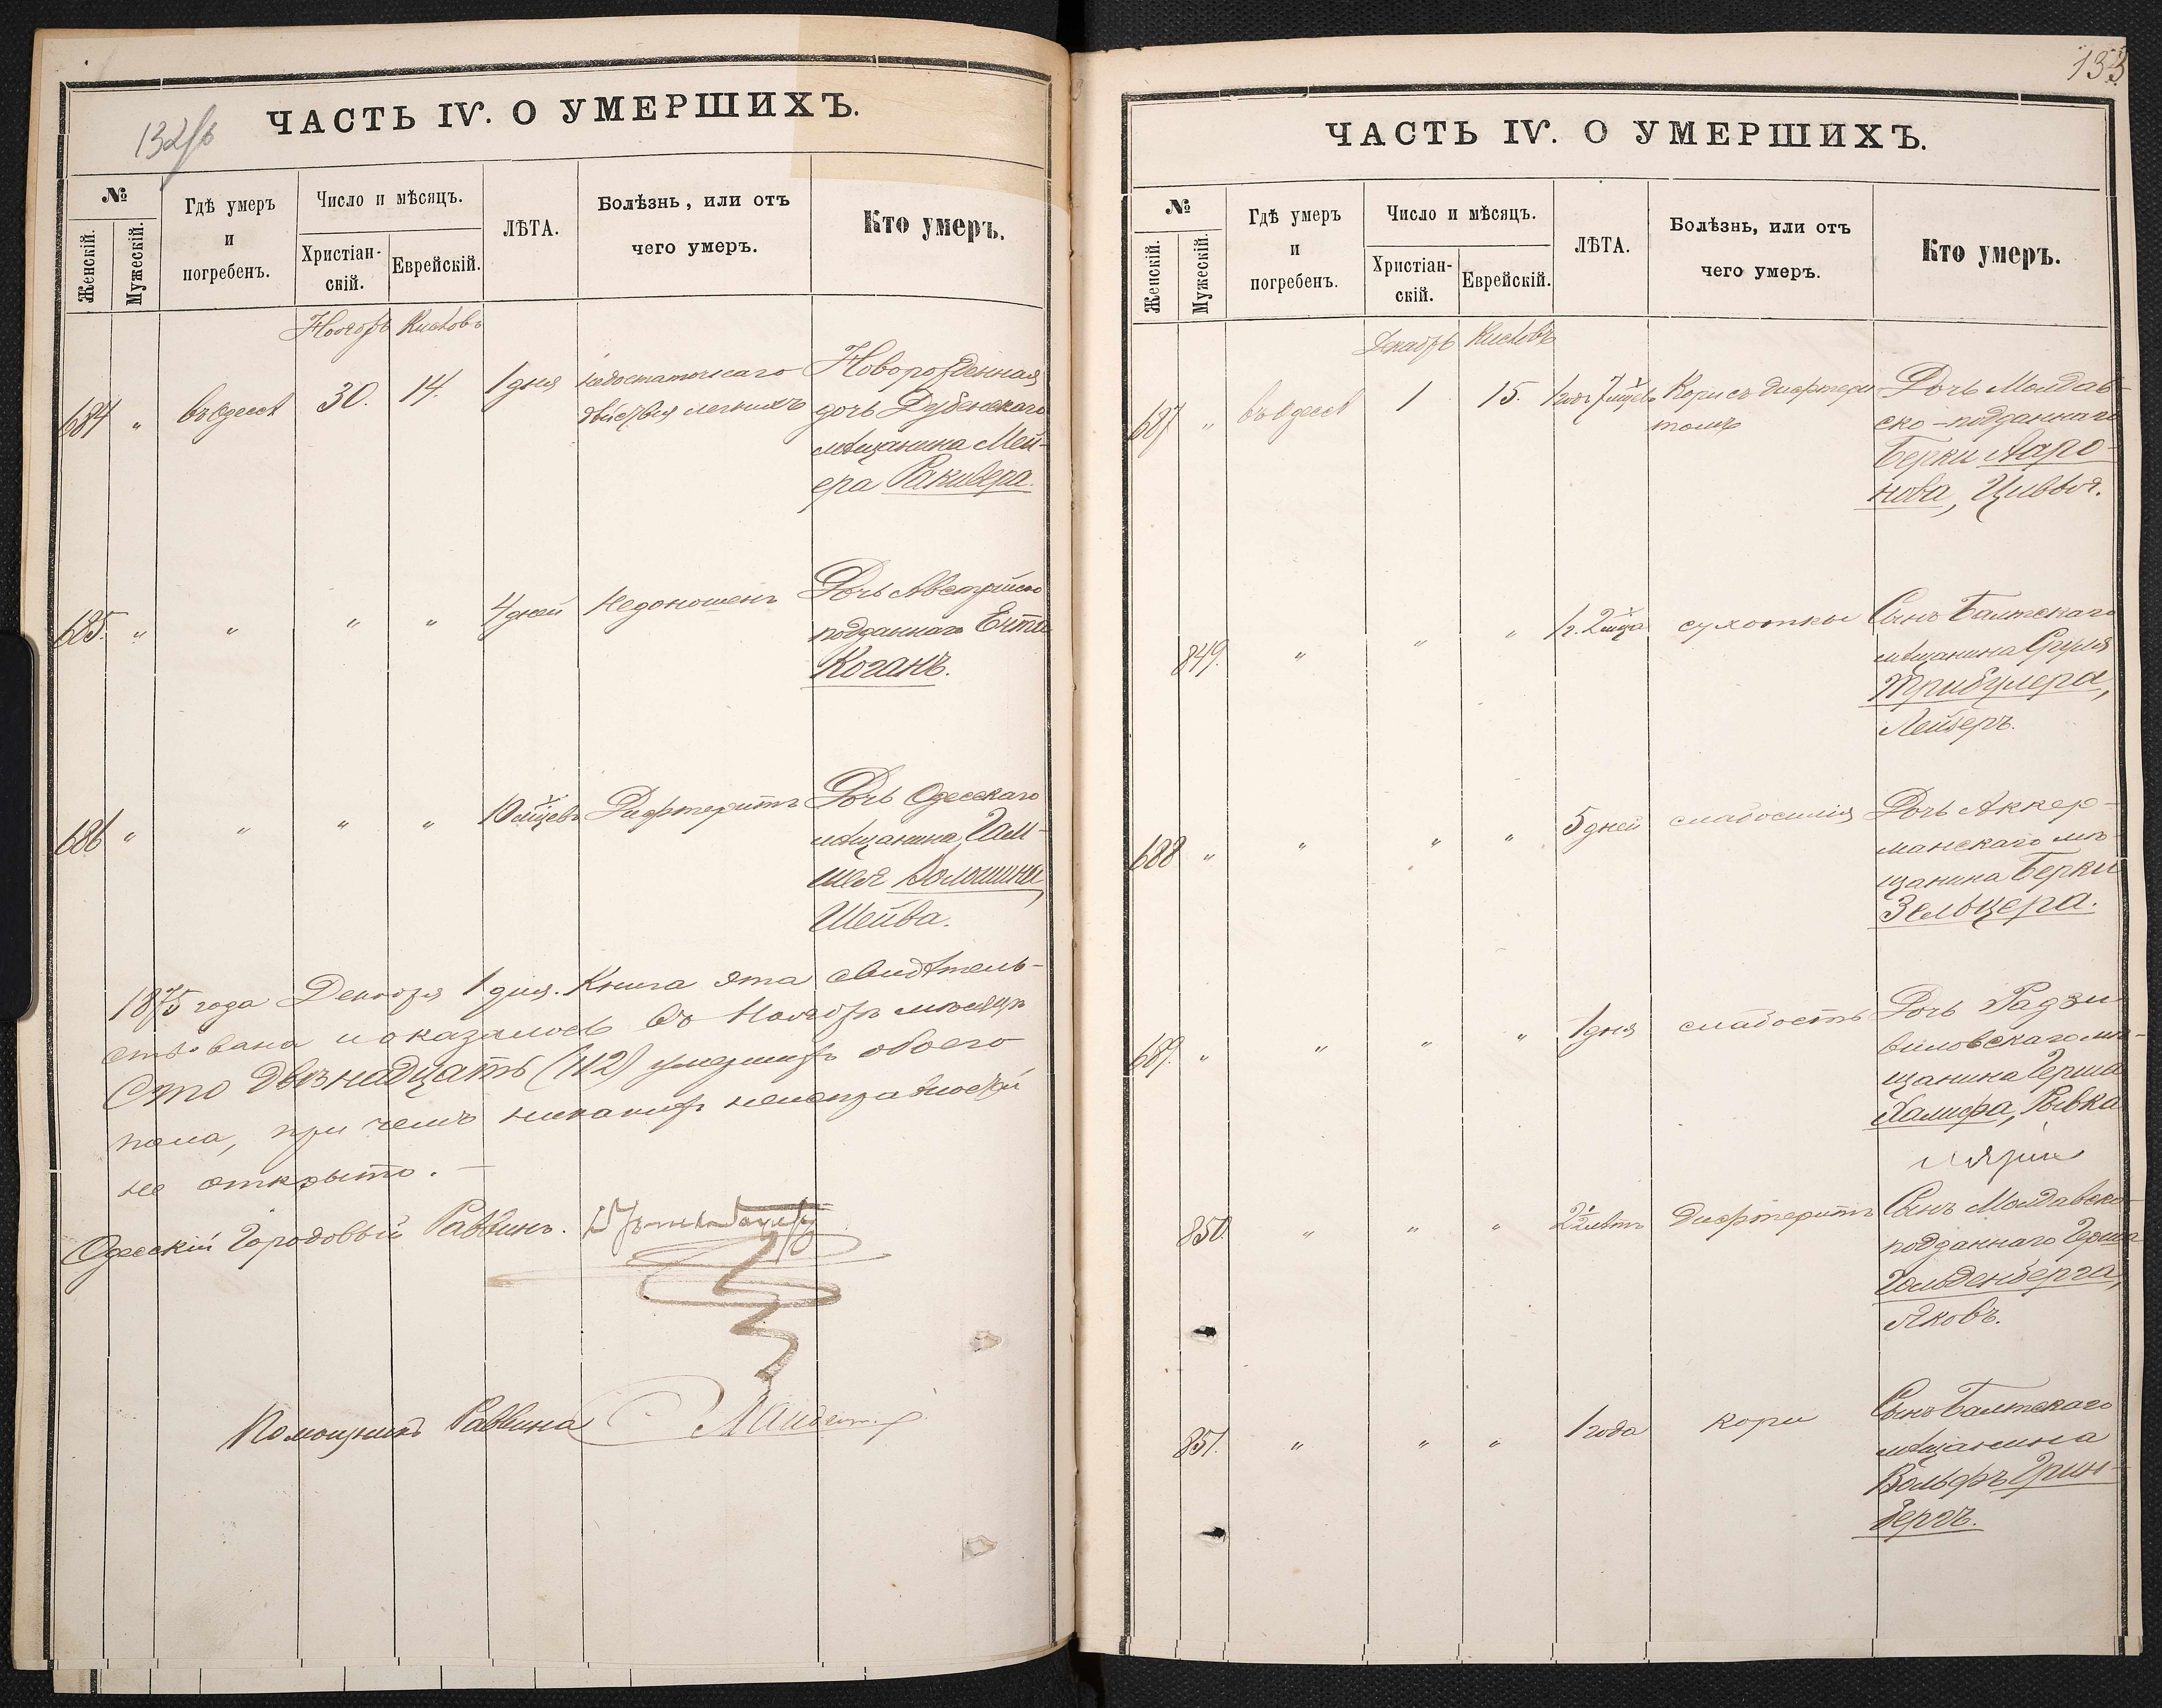 132об
ЧАСТЬ IV. О УМЕРШИХЪ.
№
Женскій.
Мужескій.
Гдѣ умеръ
и
погребенъ.
Число и мѣсяцъ.
Христіан-
скій.
Еврейскій.
ЛѢТА.
Болѣзнь, или отъ
чего умеръ.
Кто умеръ.
Ноябрь Кислевъ
684 " въ Одессѣ 30. 14. 1 дня недостаточнаго Новорожденная
дѣйствія легкихъ дочь Дубенскаго
мѣщанина Мей-
ера Ракивера.
685. " " " " 4 дней Недоношенъ Дочь Австрійско
подданнаго
Коганъ.
686 " " " " 10 мѣсцевъ Дифтеритъ Дочь Одесскаго
мѣщанина
Волошина,
Шейва.
1875 года Декабря 1 дня. Книга эта свидѣтель-
ствована и оказалось въ Ноябрѣ мѣсяцѣ
Сто двѣнадцать (112) умершихъ обоего
пола, при чемъ никакихъ неисправностей
не открыто. —
Одесскій Городовый Раввинъ.
Помощникъ Раввина
133
ЧАСТЬ IV. О УМЕРШИХЪ.
№
Женскій.
Мужескій.
Гдѣ умеръ
и
погребенъ.
Число и мѣсяцъ.
Христіан-
скій.
Еврейскій.
ЛѢТА.
Болѣзнь, или отъ
чего умеръ.
Кто умеръ.
Декабрь Кислевъ
687 " въ Одессѣ 1 15. 1 годъ 7 мѣсцевъ Кори съ дифтери Дочь Молдав-
томъ ско-подданнаго
Берки Ааро-
нова, Цивья.
849. " " " 1 г. 2 мѣсца сухотки Сынъ Балтскаго
мѣщанина Сруля
Трибулера,
Лейзеръ.
688 " " " " 5 дней слабосилія Дочь Аккер-
манскаго мѣ-
щанина Берки
Зельцера.
689. " " " " 1 дня слабость Дочь Радзи
виловскаго мѣ-
щанина Герша
Халифа, Рывка
850 " " " 2½ лѣтъ Дифтеритъ Сынъ Молдавско-
подданнаго Герша
Гольденберга,
Яковъ.
851. " " " 1 года кори Сынъ Балтскаго
мѣщанина
Вольфъ Грин-
бергъ.